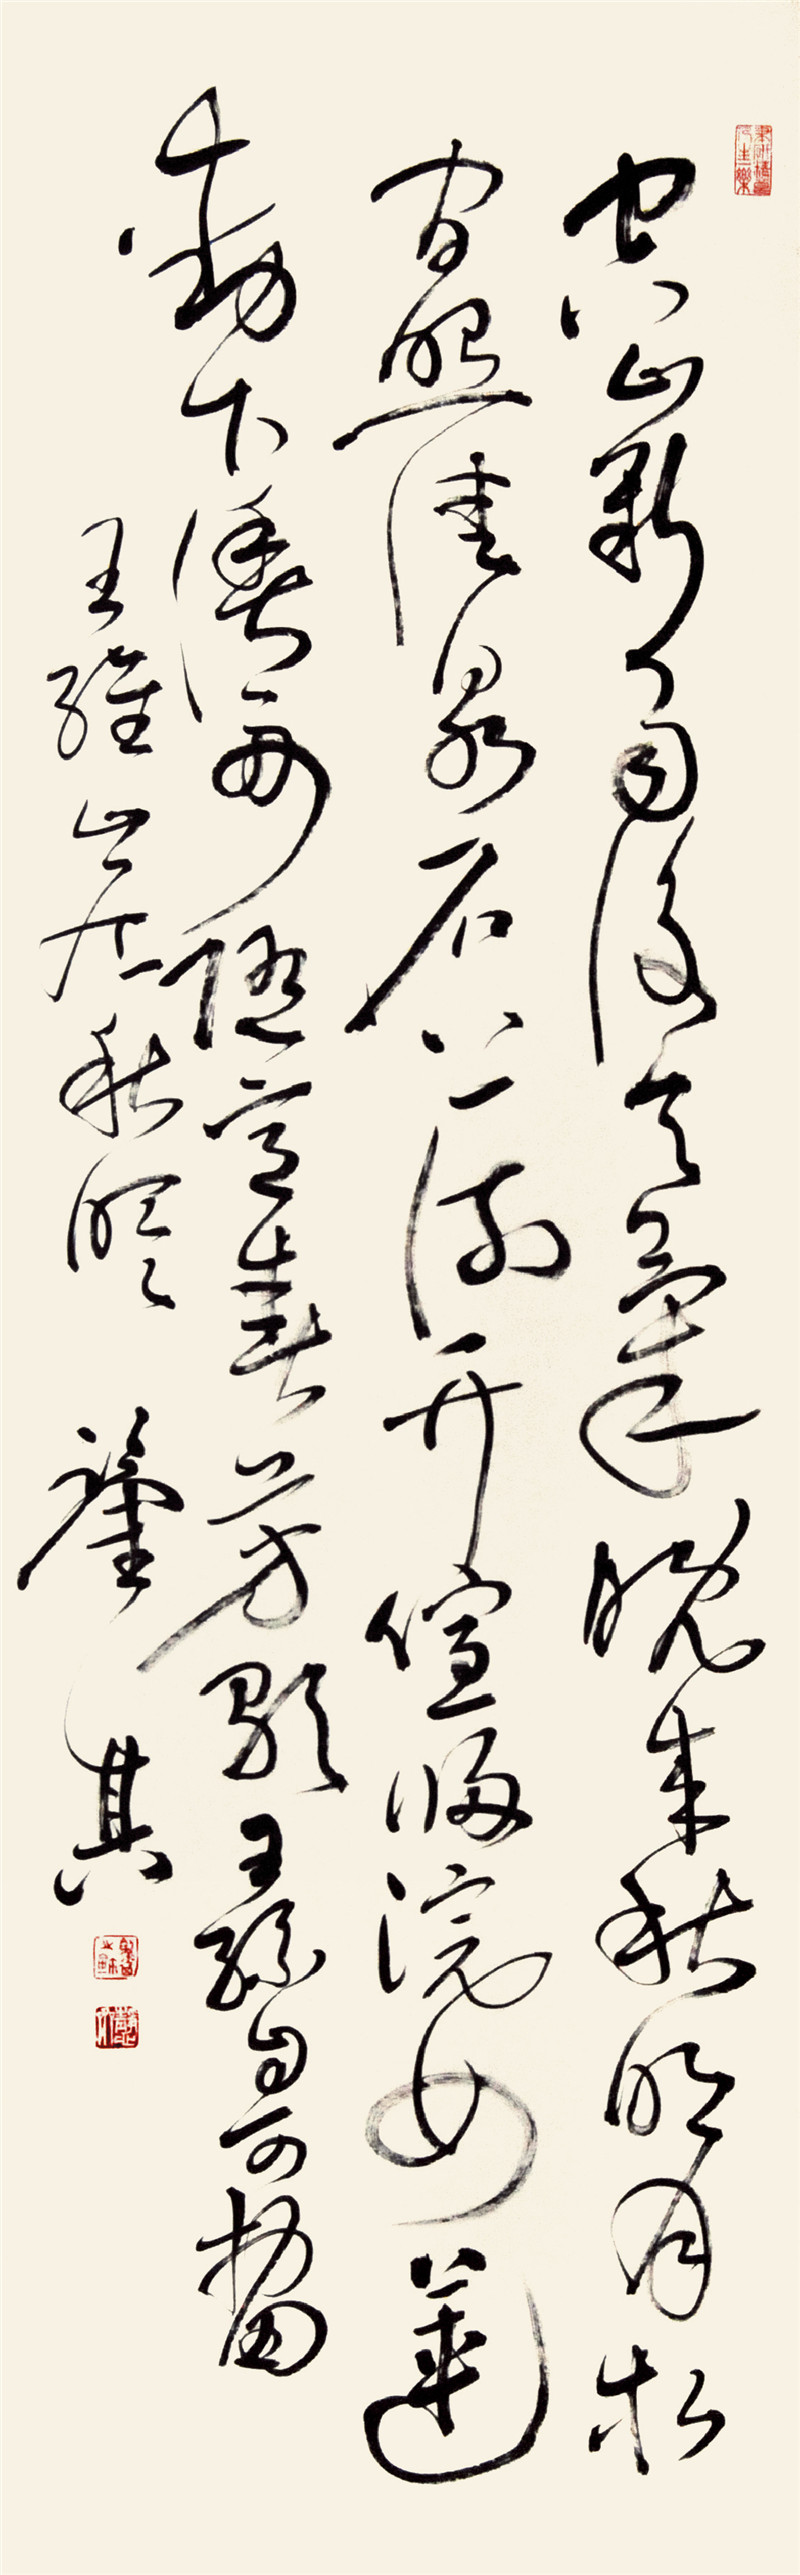 空山新雨後天氣晚來秋明月松
間照清泉石上流竹喧歸浣女蓮
動下漁舟隨意春芳歇王孫自可留
王維山居秋暝 其